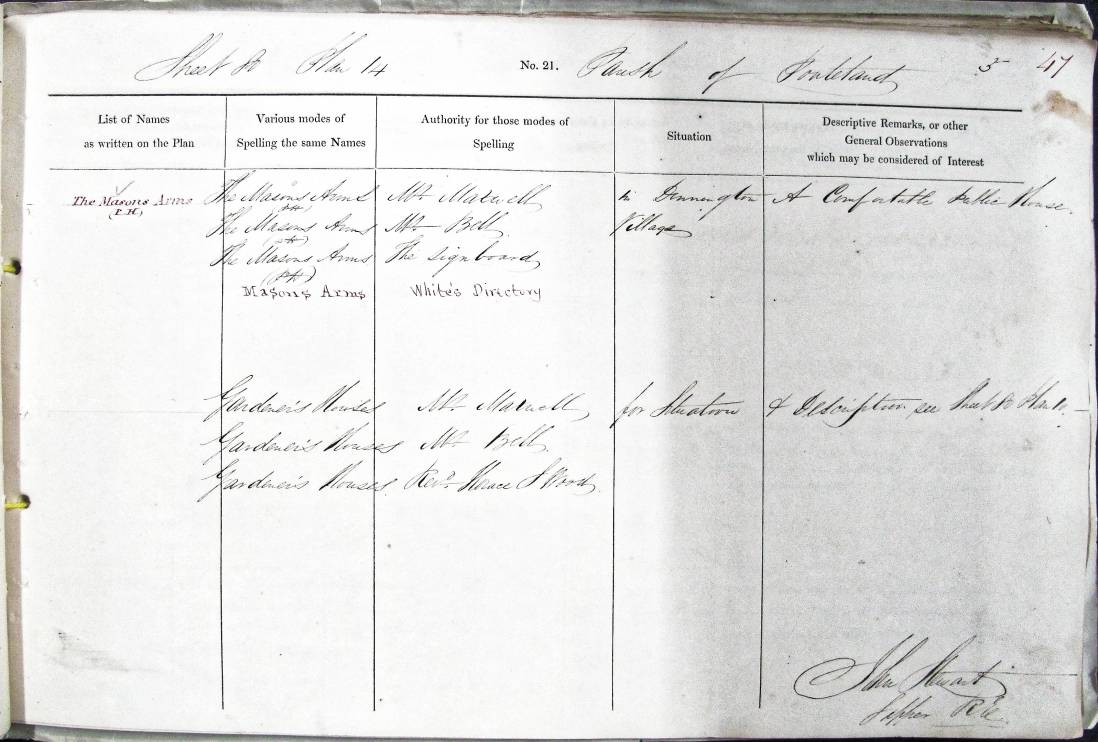 Sheet 80 Plan 14 No. 21. Parish of Ponteland 5 47
List of Names
as written on the Plan
Various modes of
Spelling the same Names
Authority for those modes of
Spelling
Situation
Descriptive Remarks, or other
General Observations
which may be considered of Interest
The Masons Arms The Masons Arms Mr. Maxwell in Dinnington A Comfortable Public House.
(P.H.) (PH)
The Masons Arms Mr. Bell Village
(PH)
The Masons Arms The signboard
(PH)
Masons Arms White's Directory
Gardener's Houses Mr. Maxwell for Situation & Description see Sheet 80 Plan
Gardener's Houses Mr. Bell
Gardener's Houses Revd. Horace S Wood
John Stewart
Sapper R.E.